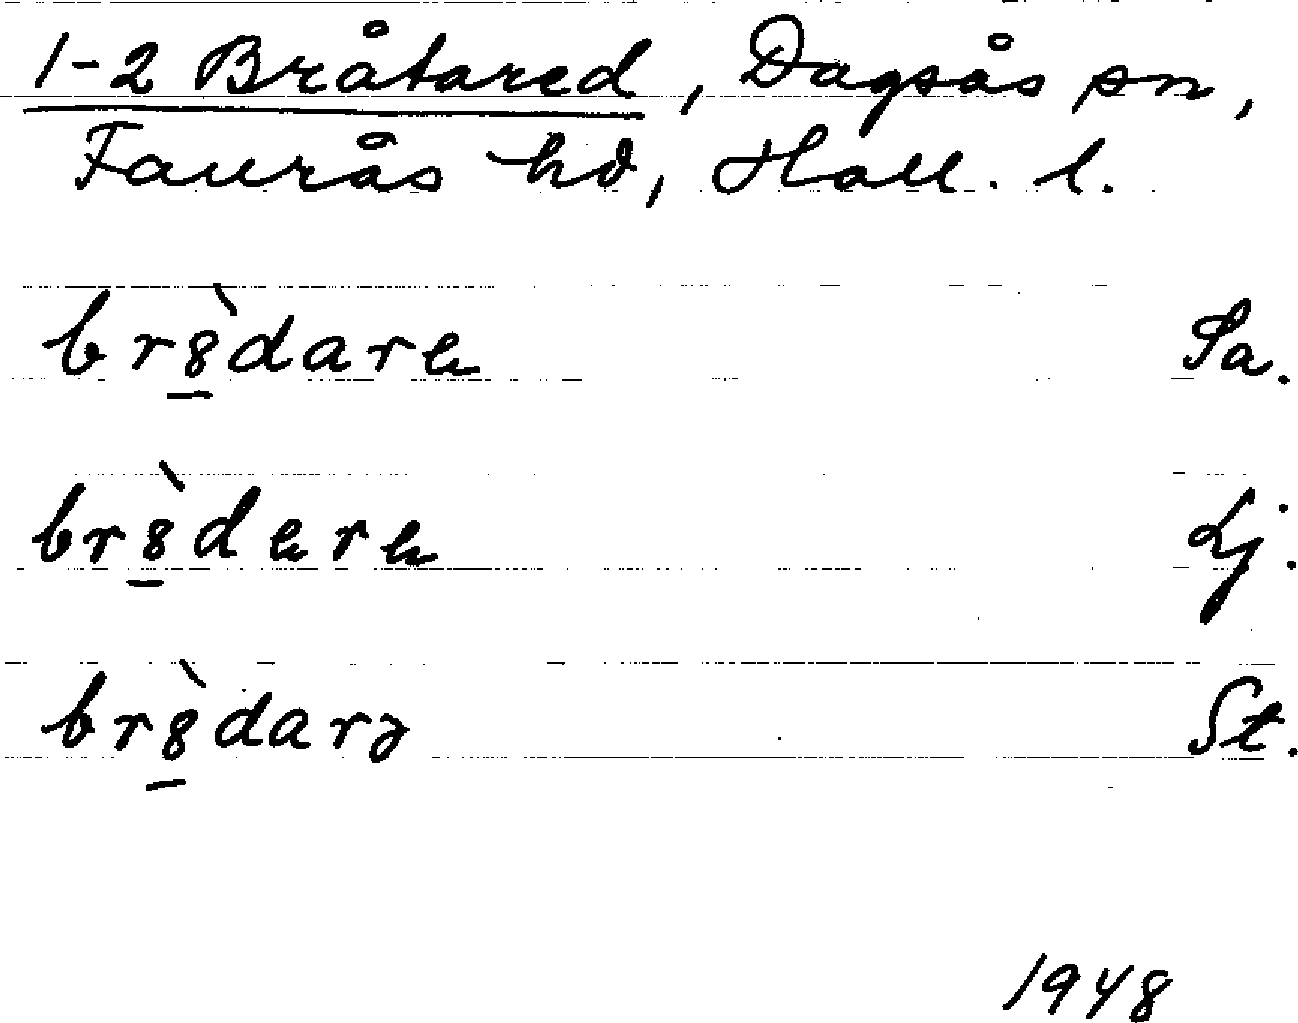 1-2 Bråtared, Dagsås sn,
Faurås hd, Hall. l.
br8̲̀darɛ Sa.
br8̲̀dɛrɛ Lj.
br8̲̀darə St.
1948